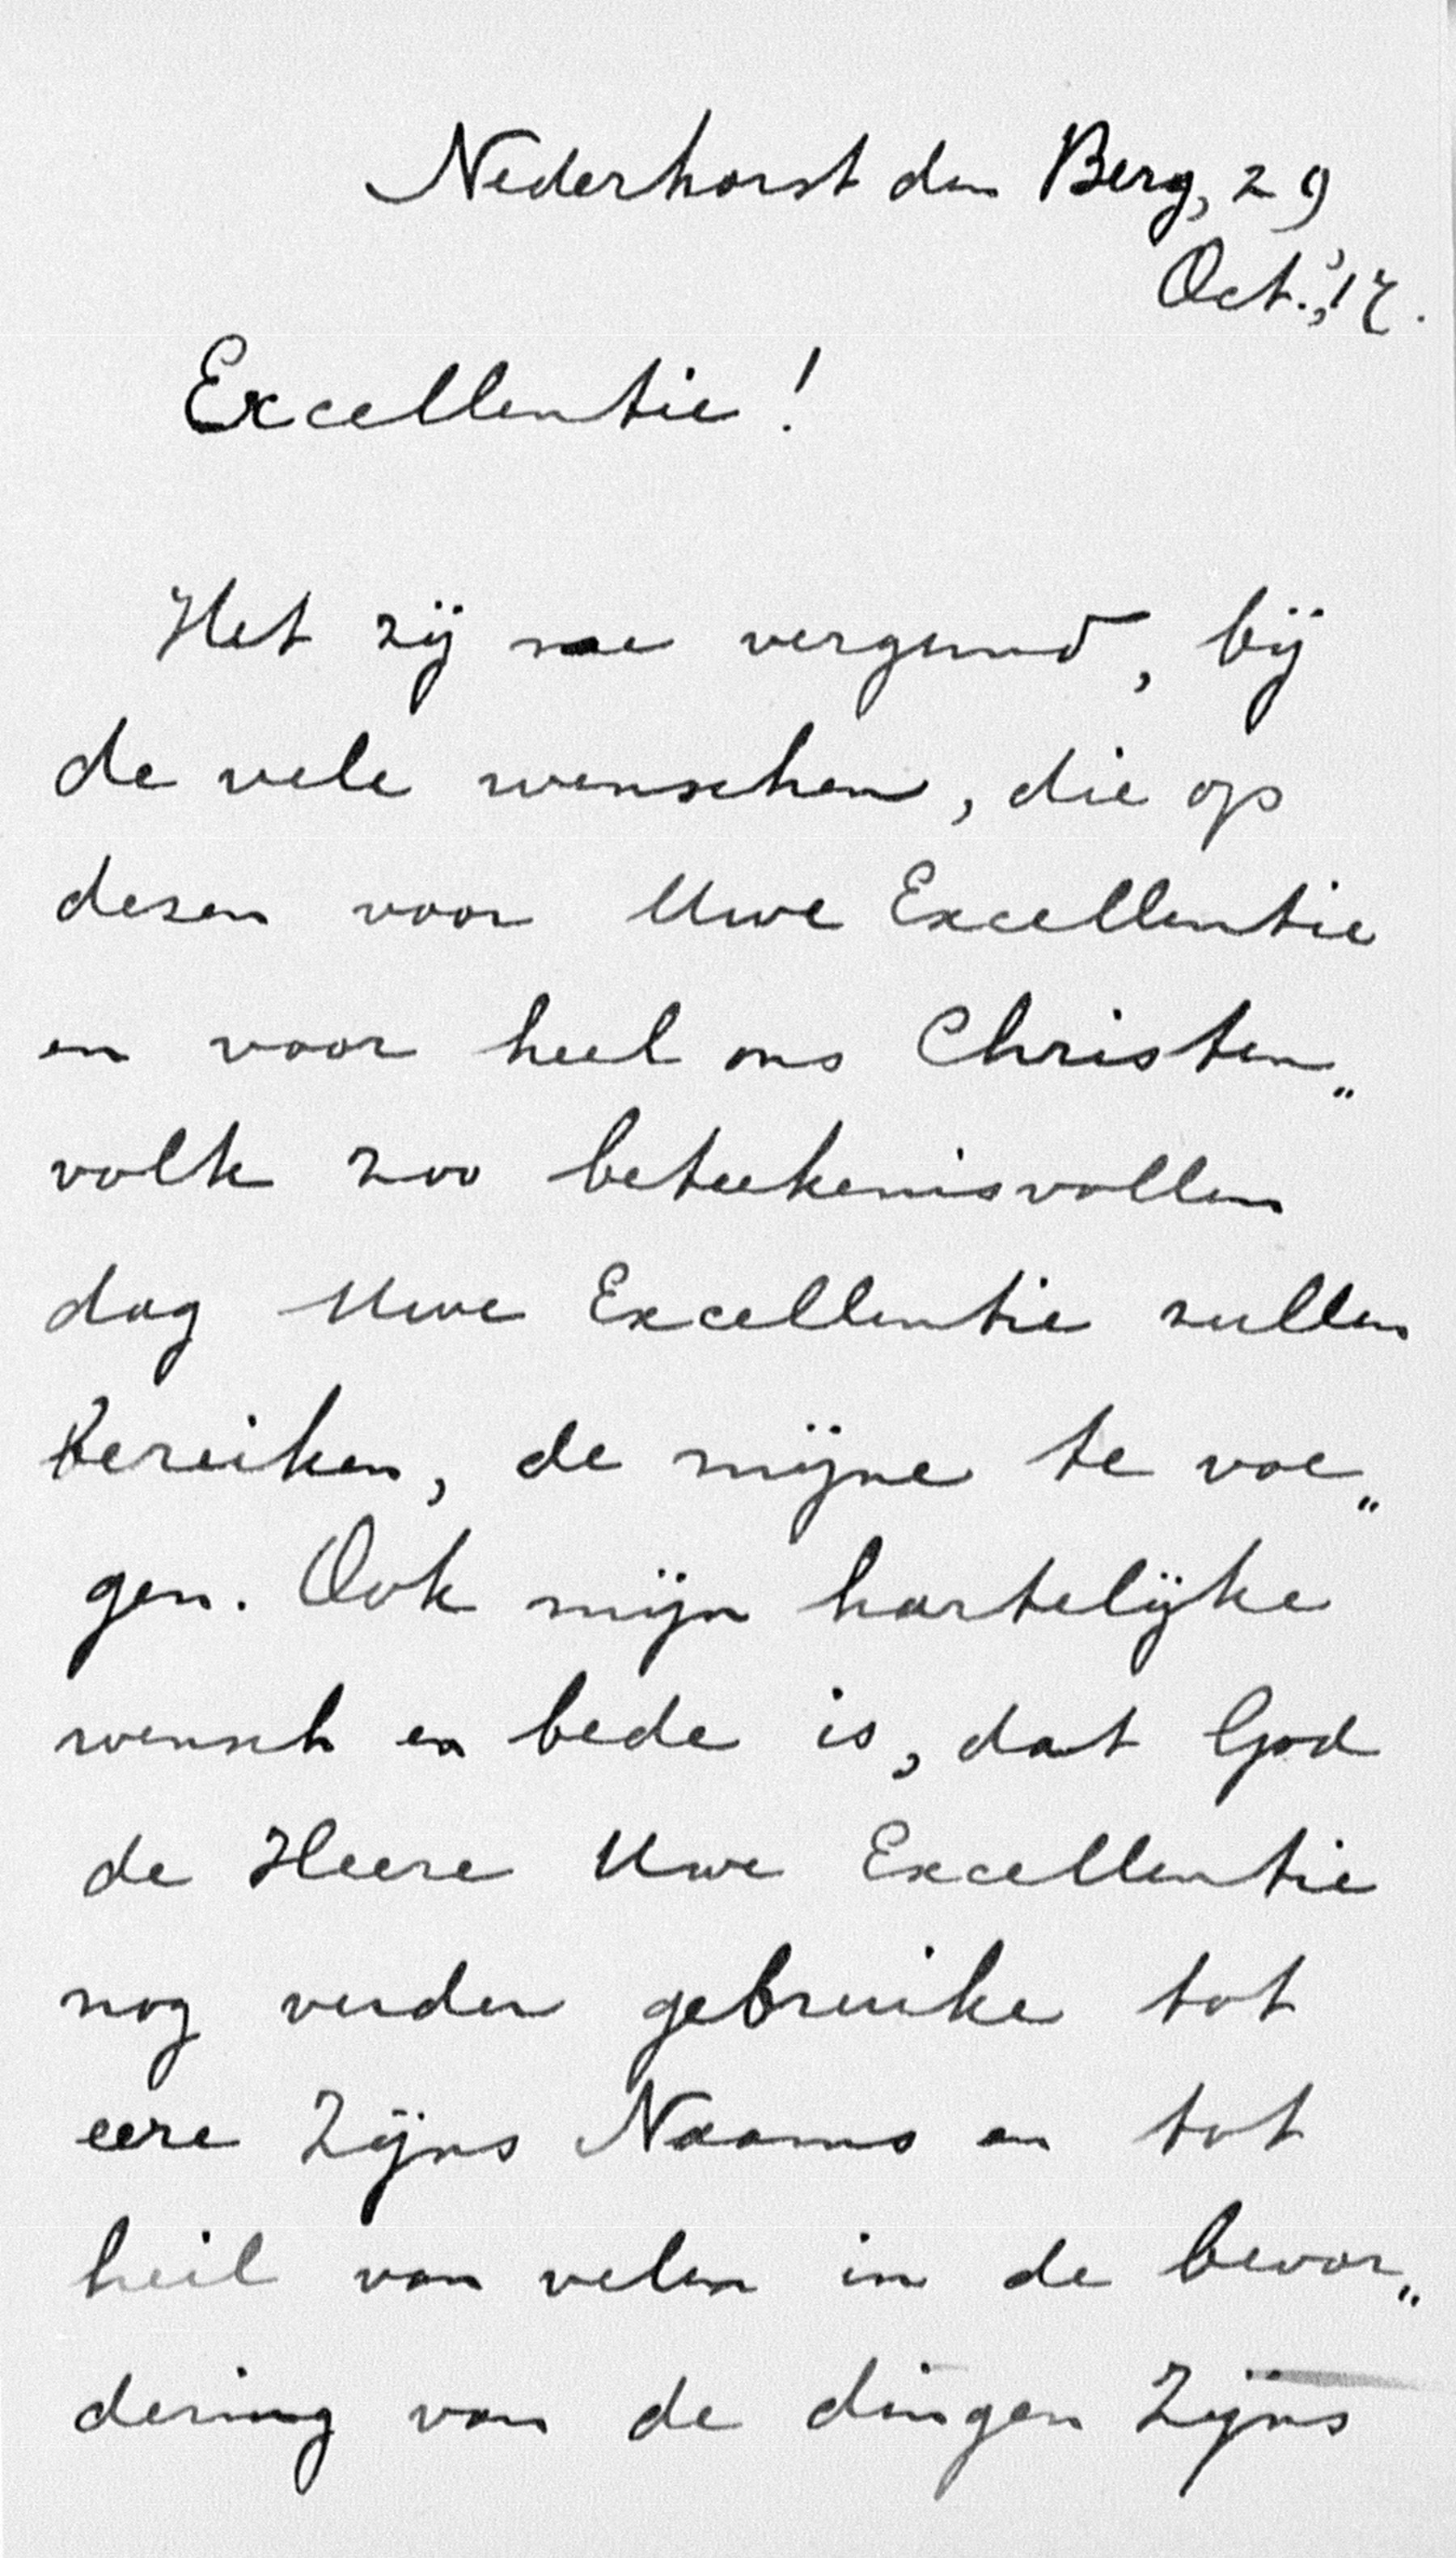 Nederhorst den Berg, 29
Oct., '17.
Excellentie!
Het zij me vergund, bij
de vele wenschen, die op
dezen voor Uwe Excellentie
en voor heel ons Christen„
volk zoo beteekenisvollen
dag Uwe Excellentie zullen
bereiken, de mijne te voe„
gen. Ook mijn hartelijke
wensch en bede is, dat God
de Heere Uwe Excellentie
nog verder gebruike tot
eere Zijns Naams en tot
heil van velen in de bevor„
dering van de dingen Zijns